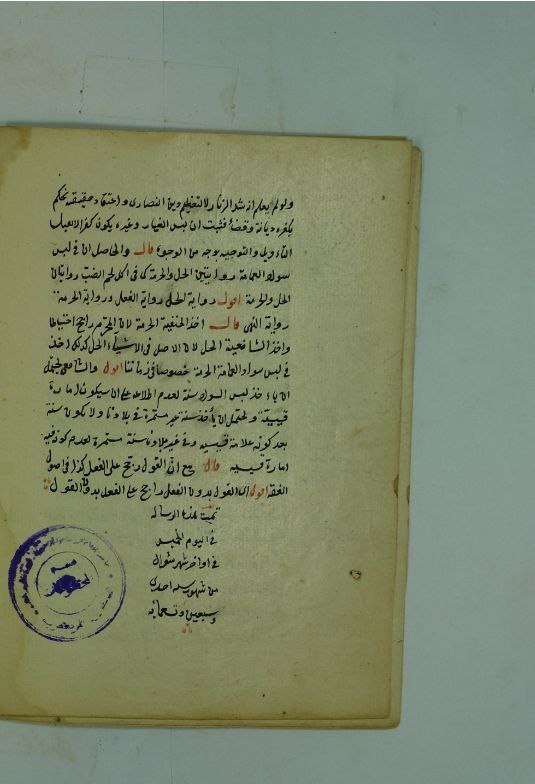 ولو لم يعلم انه شد الزنار لا لتعظيم دين النصارى واعتقاد حقيقته نحكم
بكفره ديانة وقضاء فثبت ان لبس الغيار وغيره يكون كفرا لا يقبل
التأويل والتوجيه بوجه من الوجوه قال والحاصل ان في لبس
سواد العمامة روايتين الحل والحرمة كما في اكل لحم الضب روايتان
الحل والحرمة اقول رواية الحل رواية الفعل ورواية الحرمة
رواية النهي قال اخذ الحنفية الحرمة لان المحرم راجح احتياطا
واخذ الشافعية الحل لان الاصل في الاشياء الحل كذلك اخذ
في لبس سواد العمامة الحرمة خصوصا في زماننا اقول والشافعي يحتمل
ان ياخذ لبس السواد سنة لعدم اطلاعه على ان سيكون امارة
قبيحة ويحتمل ان ياخذ سنة غير مستمرة في بلادنا ولا يكون سنة
بعد كونه علامة قبيسيه وفي غير بلادنا سنة مستمرة لعدم كونه فيه
امارة قبيسيه قال مع ان القول راجح على الفعل كذا في اصول
الفقه اقول ان القول بدون الفعل راجح على الفعل بدون القول
تمت هذه الرساله
في اليوم الخميس
في اواخر شهر شوال
من شهور سنه احدى
وسبعين وتسعمايه